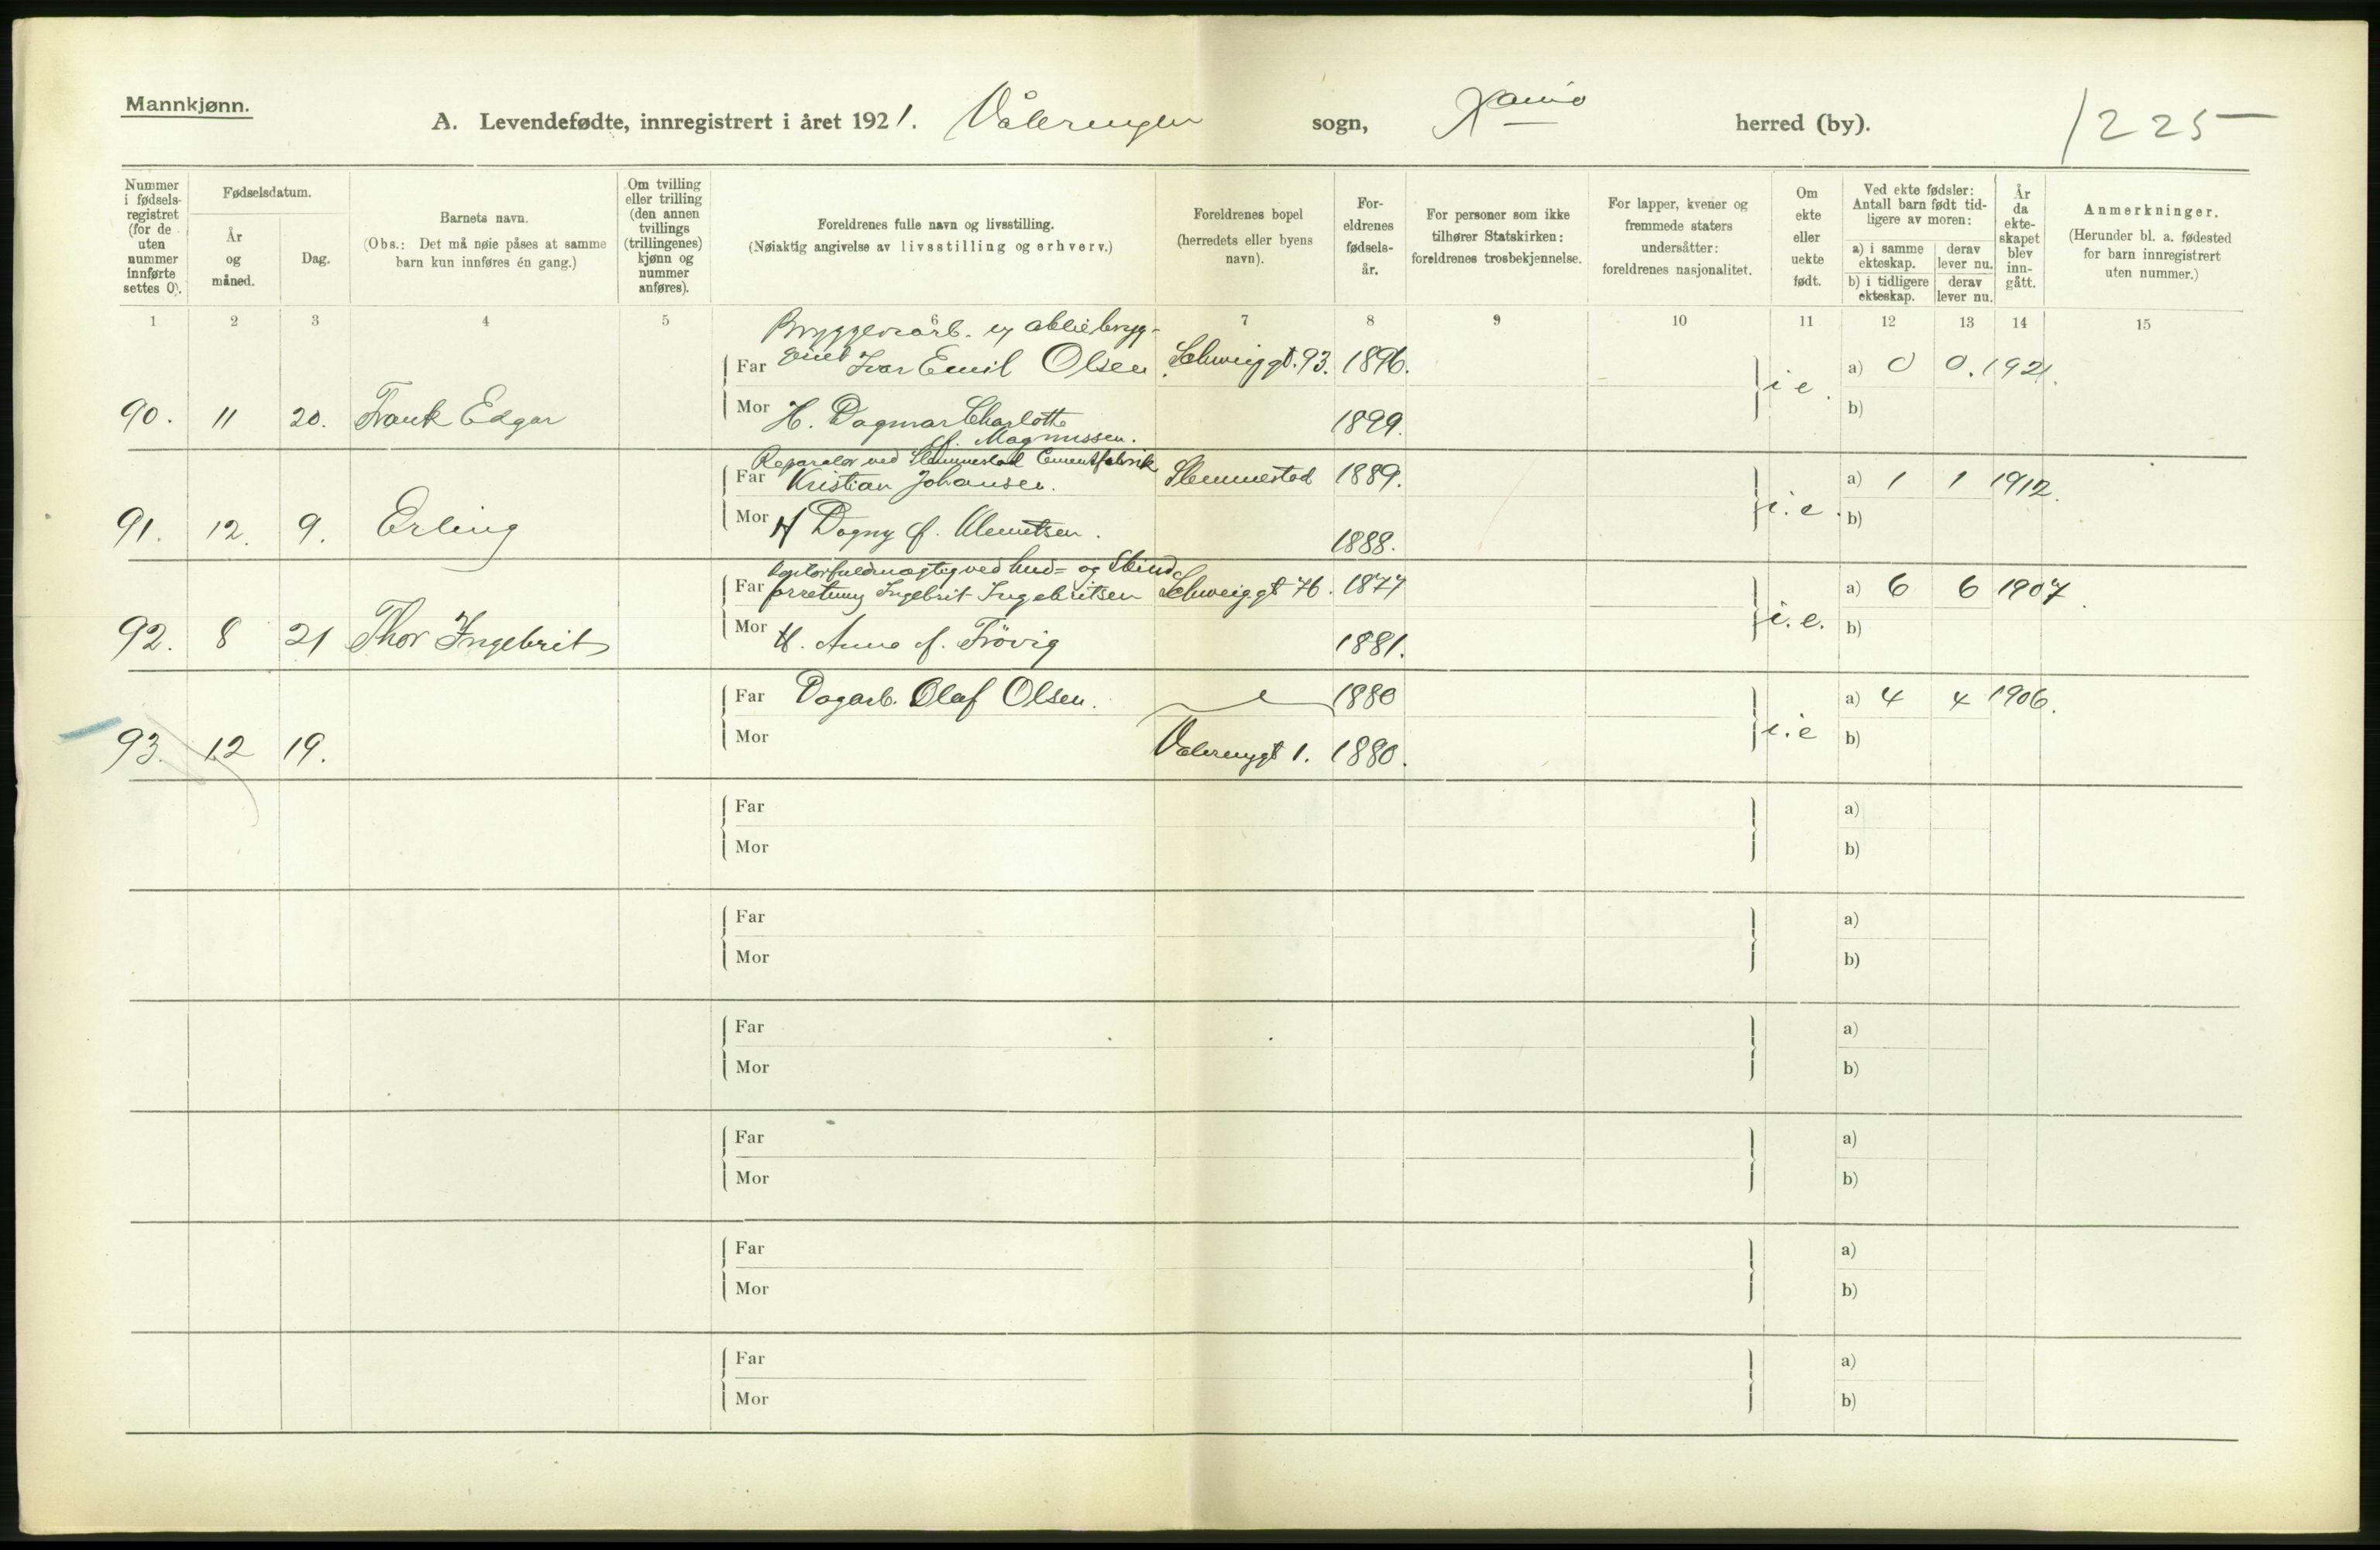 Mannkjønn.
A. Levendefødte, innregistrert i året 1921. Vålerengen sogn, Xania herred (by). 1225
Nummer i fødsels-registret (for de uten nummer innførte settes 0).
Fødselsdatum.
År og måned.
Dag.
Barnets navn.
(Obs.: Det må nøie påses at samme barn kun innføres én gang.)
Om tvilling eller trilling (den annen tvillings (trillingenes) kjønn og nummer anføres).
Foreldrenes fulle navn og livsstilling.
(Nøiaktig angivelse av livsstilling og erhverv.)
Foreldrenes bopel (herredets eller byens navn).
For-eldrenes fødsels-år.
For personer som ikke tilhører Statskirken: foreldrenes trosbekjennelse.
For lapper, kvener og fremmede staters undersåtter: foreldrenes nasjonalitet.
Om ekte eller uekte født.
Ved ekte fødsler: Antall barn født tid-ligere av moren:
a) i samme ekteskap. derav lever nu.
b) i tidligere ekteskap. derav lever nu.
År da ekte-skapet blev inn-gått.
Anmerkninger.
(Herunder bl. a. fødested for barn innregistrert uten nummer.)
1 2 3 4 5 6 7 8 9 10 11 12 13 14 15
Bryggeriarb. ey
Far Ivar Emil Olsen Schweiggt. 93. 1896. i e. a) 0 0. 1921.
90. 11 20. Frank Edgar Mor H. Dagmar Charlotte 1899. b)
f. Magnussen.
Reparatør ved Slemmestad Cementfabrik
Far Kristian Johansen. Slemmestad 1889. i. e. a) 1 1 1912.
91. 12. 9. Erling Mor H Dagny f. Klemetsen. 1888. b)
Kontorfuldmægtig ved hud= og Skind
Far forretning Ingebrit Ingebritsen Schweiggt 76. 1877 i. e. a) 6 6 1907.
92. 8 21 Thor Ingebrit Mor H. Anna f. Frövig 1881. b)
Far Dagarb. Olaf Olsen. 1880 i. e a) 4 4 1906.
93. 12 19. Mor Vålerenggt 1. 1880. b)
Far a)
Mor b)
Far a)
Mor b)
Far a)
Mor b)
Far a)
Mor b)
Far a)
Mor b)
Far a)
Mor b)